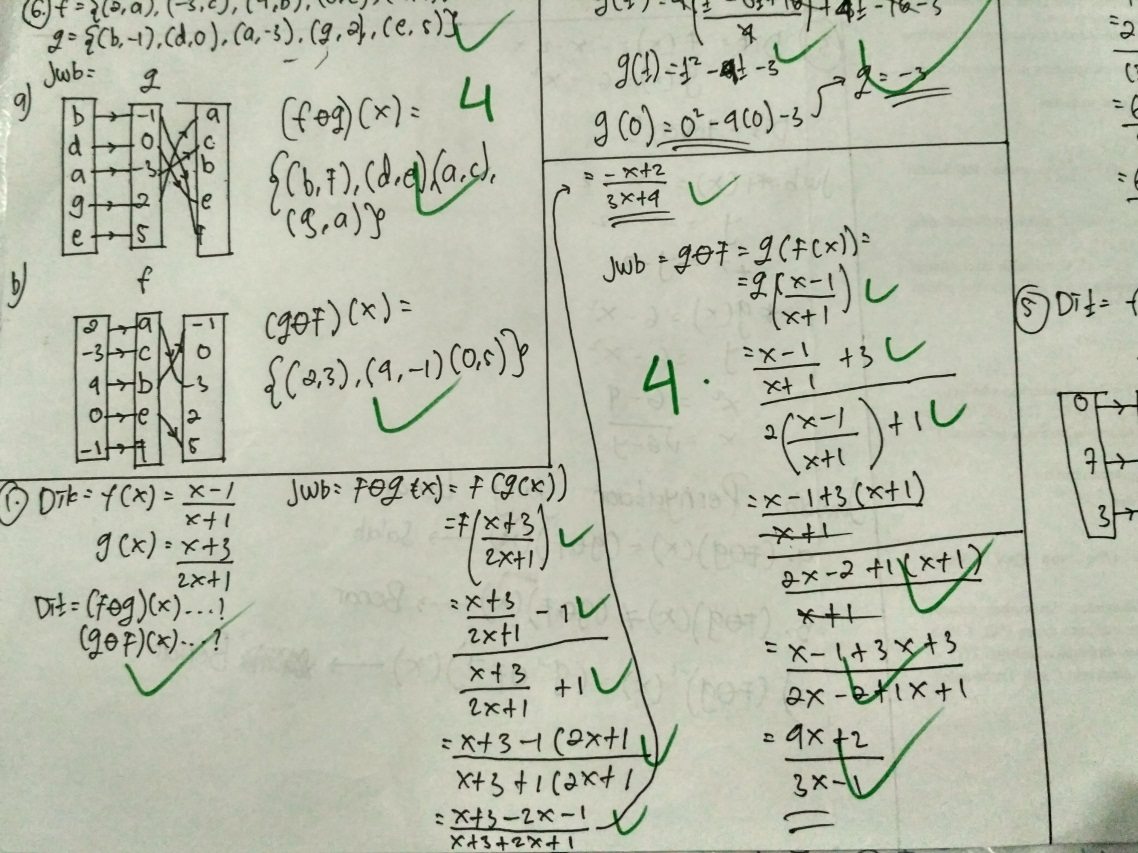 g = {(b,-1), (d,0), (a,-3), (g,2), (e,5)}
Jwb =
a)
g
b -1 a
d 0 c
a -3 b
g 2 e
e 5 f
(fog)(x) =
{(b,f), (d,e) (a,c),
(g,a)}
4
b)
f
2 a -1
-3 c 0
4 b -3
0 e 2
-1 f 5
(gof)(x) =
{(2,3), (4,-1) (0,5)}
1. Dik = f(x) = x-1 / x+1
g(x) = x+3 / 2x+1
Dit = (fog)(x) ...!
(gof)(x) ...?
Jwb = fog (x) = f(g(x))
= f(x+3 / 2x+1)
= x+3 / 2x+1 - 1
x+3 / 2x+1 + 1
= x+3-1(2x+1
x+3+1(2x+1
= x+3-2x-1
x+3+2x+1
g(0) = 0² - 4(0) - 3
g = -3
= -x+2
3x+4
Jwb = gof = g(f(x)) =
= g(x-1 / x+1)
= x-1 / x+1 + 3
2(x-1 / x+1) + 1
4
= x-1+3(x+1)
x+1
2x-2+1(x+1)
x+1
= x-1+3x+3
2x-2+1x+1
= 4x+2
3x-1
5 Dit =
0
7
3